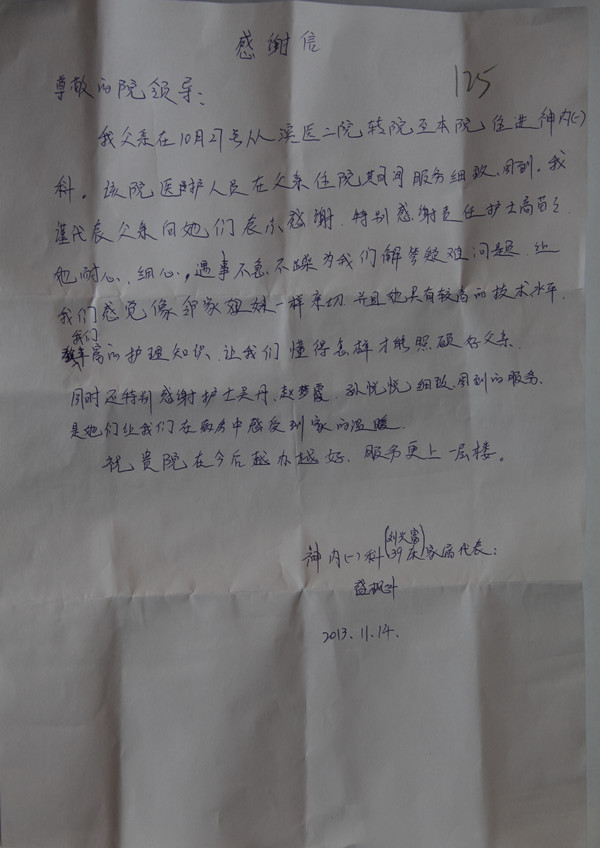 感谢信
125
尊敬的院领导：
我父亲在10月27号从滨医二院转院至本院住进神内(一)
科。该院医护人员在父亲住院其间服务细致、周到。我
谨代表父亲向她们表示感谢。特别感谢责任护士高
她耐心、细心，遇事不急、不躁为我们解答疑难问题。让
我们感觉像邻家姐妹一样亲切。并且她具有较高的技术水平、
丰富的护理知识、让我们懂得怎样才能照顾好父亲。
我们
同时还特别感谢护士吴丹、赵梦霞、孙悦悦细致、周到的服务、
是她们让我们在病房中感受到家的温暖。
祝贵院在今后越办越好、服务更上一层楼。
神内(一)科(39床)家属代表：
2013.11.14.